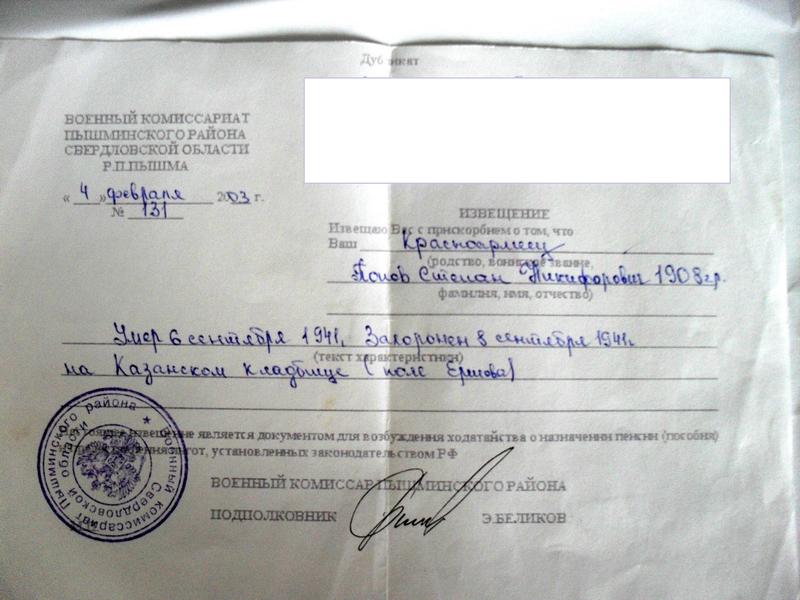 Дубликат
ВОЕННЫЙ КОМИССАРИАТ
ПЫШМИНСКОГО РАЙОНА
СВЕРДЛОВСКОЙ ОБЛАСТИ
Р.П.ПЫШМА
« 4 » февраля 2003 г.
№ 131
ИЗВЕЩЕНИЕ
Извещаю Вас с прискорбием о том, что
Ваш Красноармеец
(родство, воинское звание,
Попов Степан Никифорович 1908 г.р.
фамилия, имя, отчество)
Умер 6 сентября 1941г. Захоронен 8 сентября 1941г.
(текст характеристики)
на Казанском кладбище (поле Ершова)
Настоящее извещение является документом для возбуждения ходатайства о назначении пенсии (пособия)
льгот, установленных законодательством РФ
ВОЕННЫЙ КОМИССАР ПЫШМИНСКОГО РАЙОНА
ПОДПОЛКОВНИК Э.БЕЛИКОВ
Военный комиссариат Пышминского района
Свердловской области